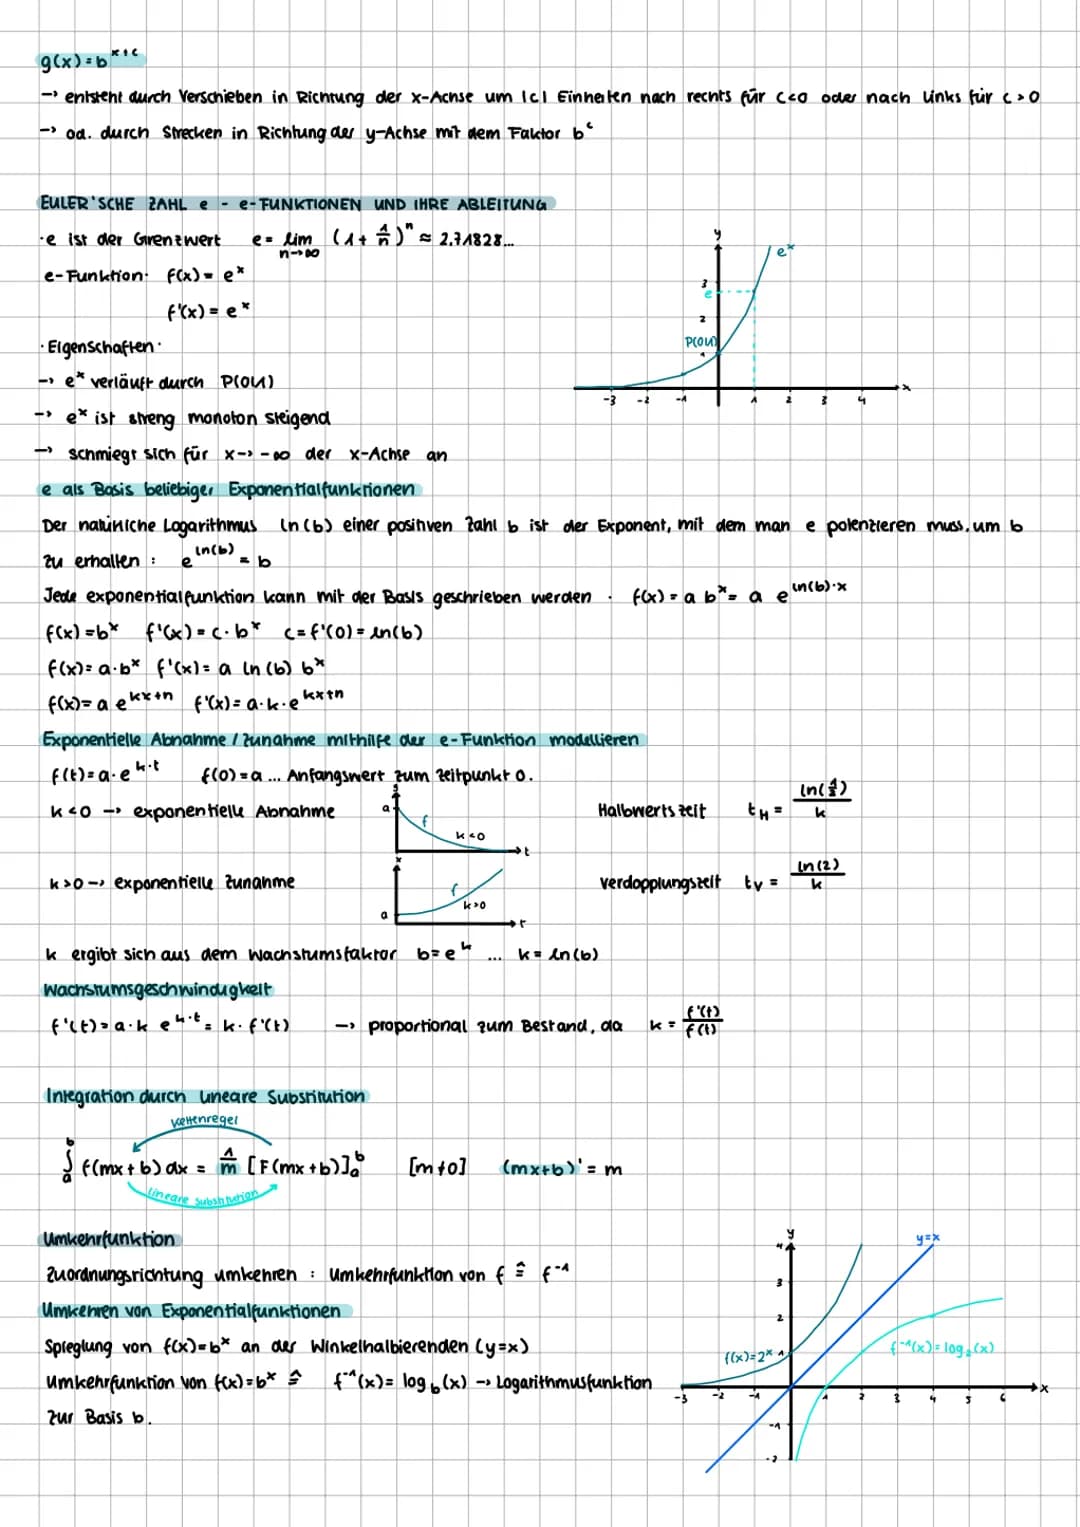 g(x) = b^(x+c)
→ entsteht durch Verschieben in Richtung der x-Achse um |c| Einheiten nach rechts für c<0 oder nach links für c>0
→ od. durch Strecken in Richtung der y-Achse mit dem Faktor b^c
EULER'SCHE ZAHL e - e-FUNKTIONEN UND IHRE ABLEITUNG
· e ist der Grenzwert e = lim n→∞ (1 + 1/n)^n ≈ 2,71828...
e-Funktion: f(x) = e^x
f'(x) = e^x
· Eigenschaften ·
→ e^x verläuft durch P(0|1)
→ e^x ist streng monoton steigend
→ schmiegt sich für x→ -∞ der x-Achse an
y
e^x
3
e
2
P(0|1)
1
-3 -2 -1 1 2 3 4 x
e als Basis beliebiger Exponentialfunktionen
Der natürliche Logarithmus ln(b) einer positiven Zahl b ist der Exponent, mit dem man e potenzieren muss, um b
zu erhalten : e^(ln(b)) = b
Jede exponentialfunktion kann mit der Basis geschrieben werden · f(x) = a b^x = a e^(ln(b)·x)
f(x) = b^x f'(x) = c · b^x c = f'(0) = ln(b)
f(x) = a·b^x f'(x) = a ln(b) b^x
f(x) = a e^(kx+n) f'(x) = a·k·e^(kx+n)
Exponentielle Abnahme / Zunahme mithilfe der e-Funktion modellieren
f(t) = a·e^(k·t) f(0) = a ... Anfangswert zum Zeitpunkt 0.
k<0 → exponentielle Abnahme
a f k<0 t
Halbwertszeit t_H = ln(1/2) / k
k>0 → exponentielle Zunahme
a f k>0 t
Verdopplungszeit t_V = ln(2) / k
k ergibt sich aus dem Wachstumsfaktor b = e^k ... k = ln(b)
Wachstumsgeschwindigkeit
f'(t) = a·k e^(k·t) = k· f'(t) → proportional zum Bestand, da k = f'(t) / f(t)
Integration durch lineare Substitution
Kettenregel
∫_a^b f(mx+b) dx = 1/m [F(mx+b)]_a^b [m≠0] (mx+b)' = m
lineare Substitution
Umkehrfunktion
Zuordnungsrichtung umkehren : Umkehrfunktion von f ≙ f^-1
Umkehren von Exponentialfunktionen
Spieglung von f(x)=b^x an der Winkelhalbierenden (y=x)
Umkehrfunktion von f(x)=b^x ≙ f^-1(x) = log_b(x) → Logarithmusfunktion
zur Basis b.
y
y=x
4
3
2
f(x)=2^x 1
f^-1(x) = log_2(x)
-3 -2 -1 1 2 3 4 5 6 x
-1
-2